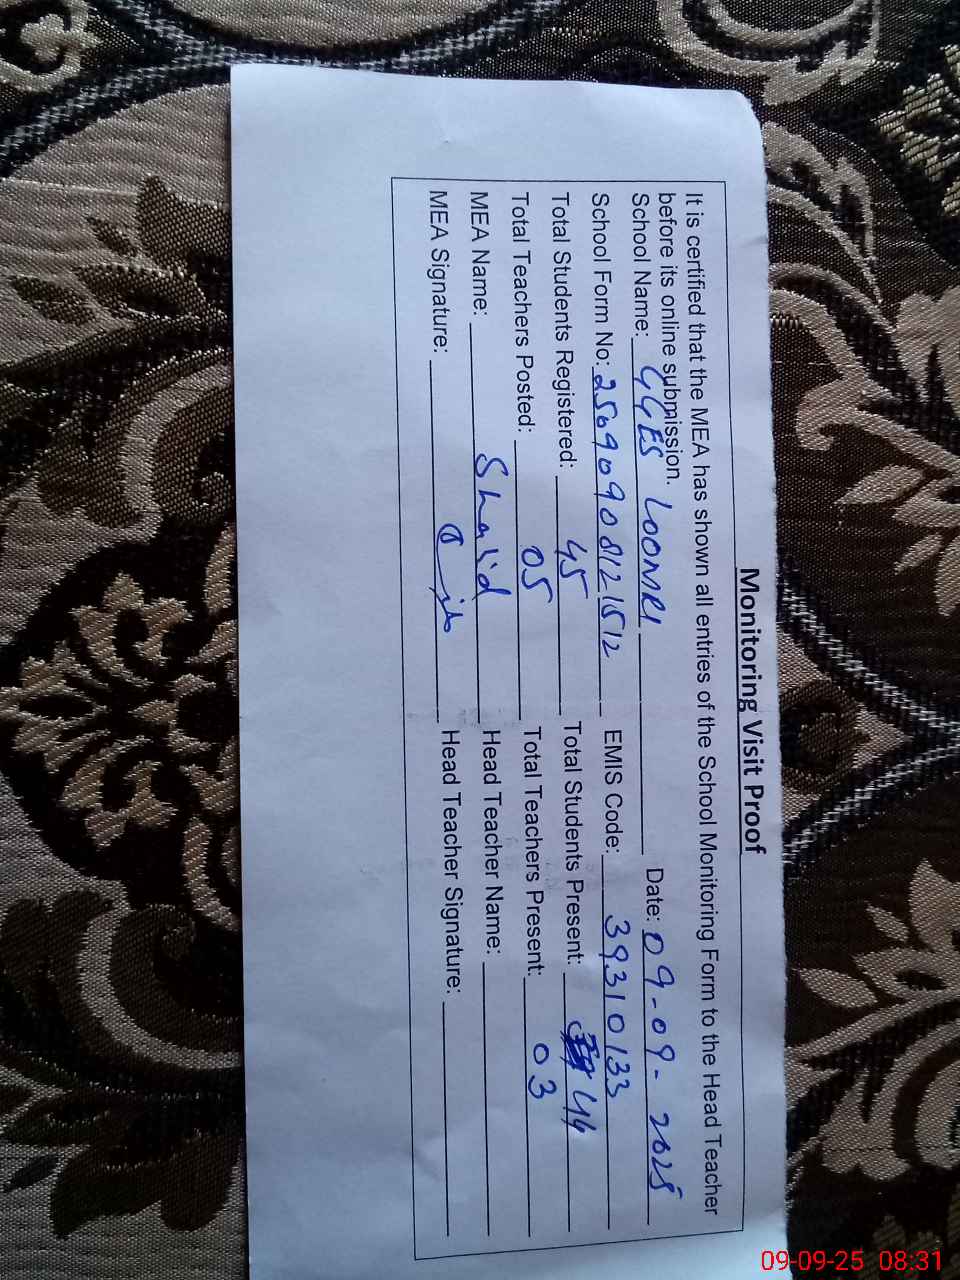 Monitoring Visit Proof
It is certified that the MEA has shown all entries of the School Monitoring Form to the Head Teacher
before its online submission.
School Name: GGES LOOMRI Date: 09-09-2025
School Form No: 25090908121512 EMIS Code: 39310133
Total Students Registered: 45 Total Students Present: 44
Total Teachers Posted: 05 Total Teachers Present: 03
MEA Name: Shahid Head Teacher Name:
MEA Signature: Head Teacher Signature:
09-09-25 08:31